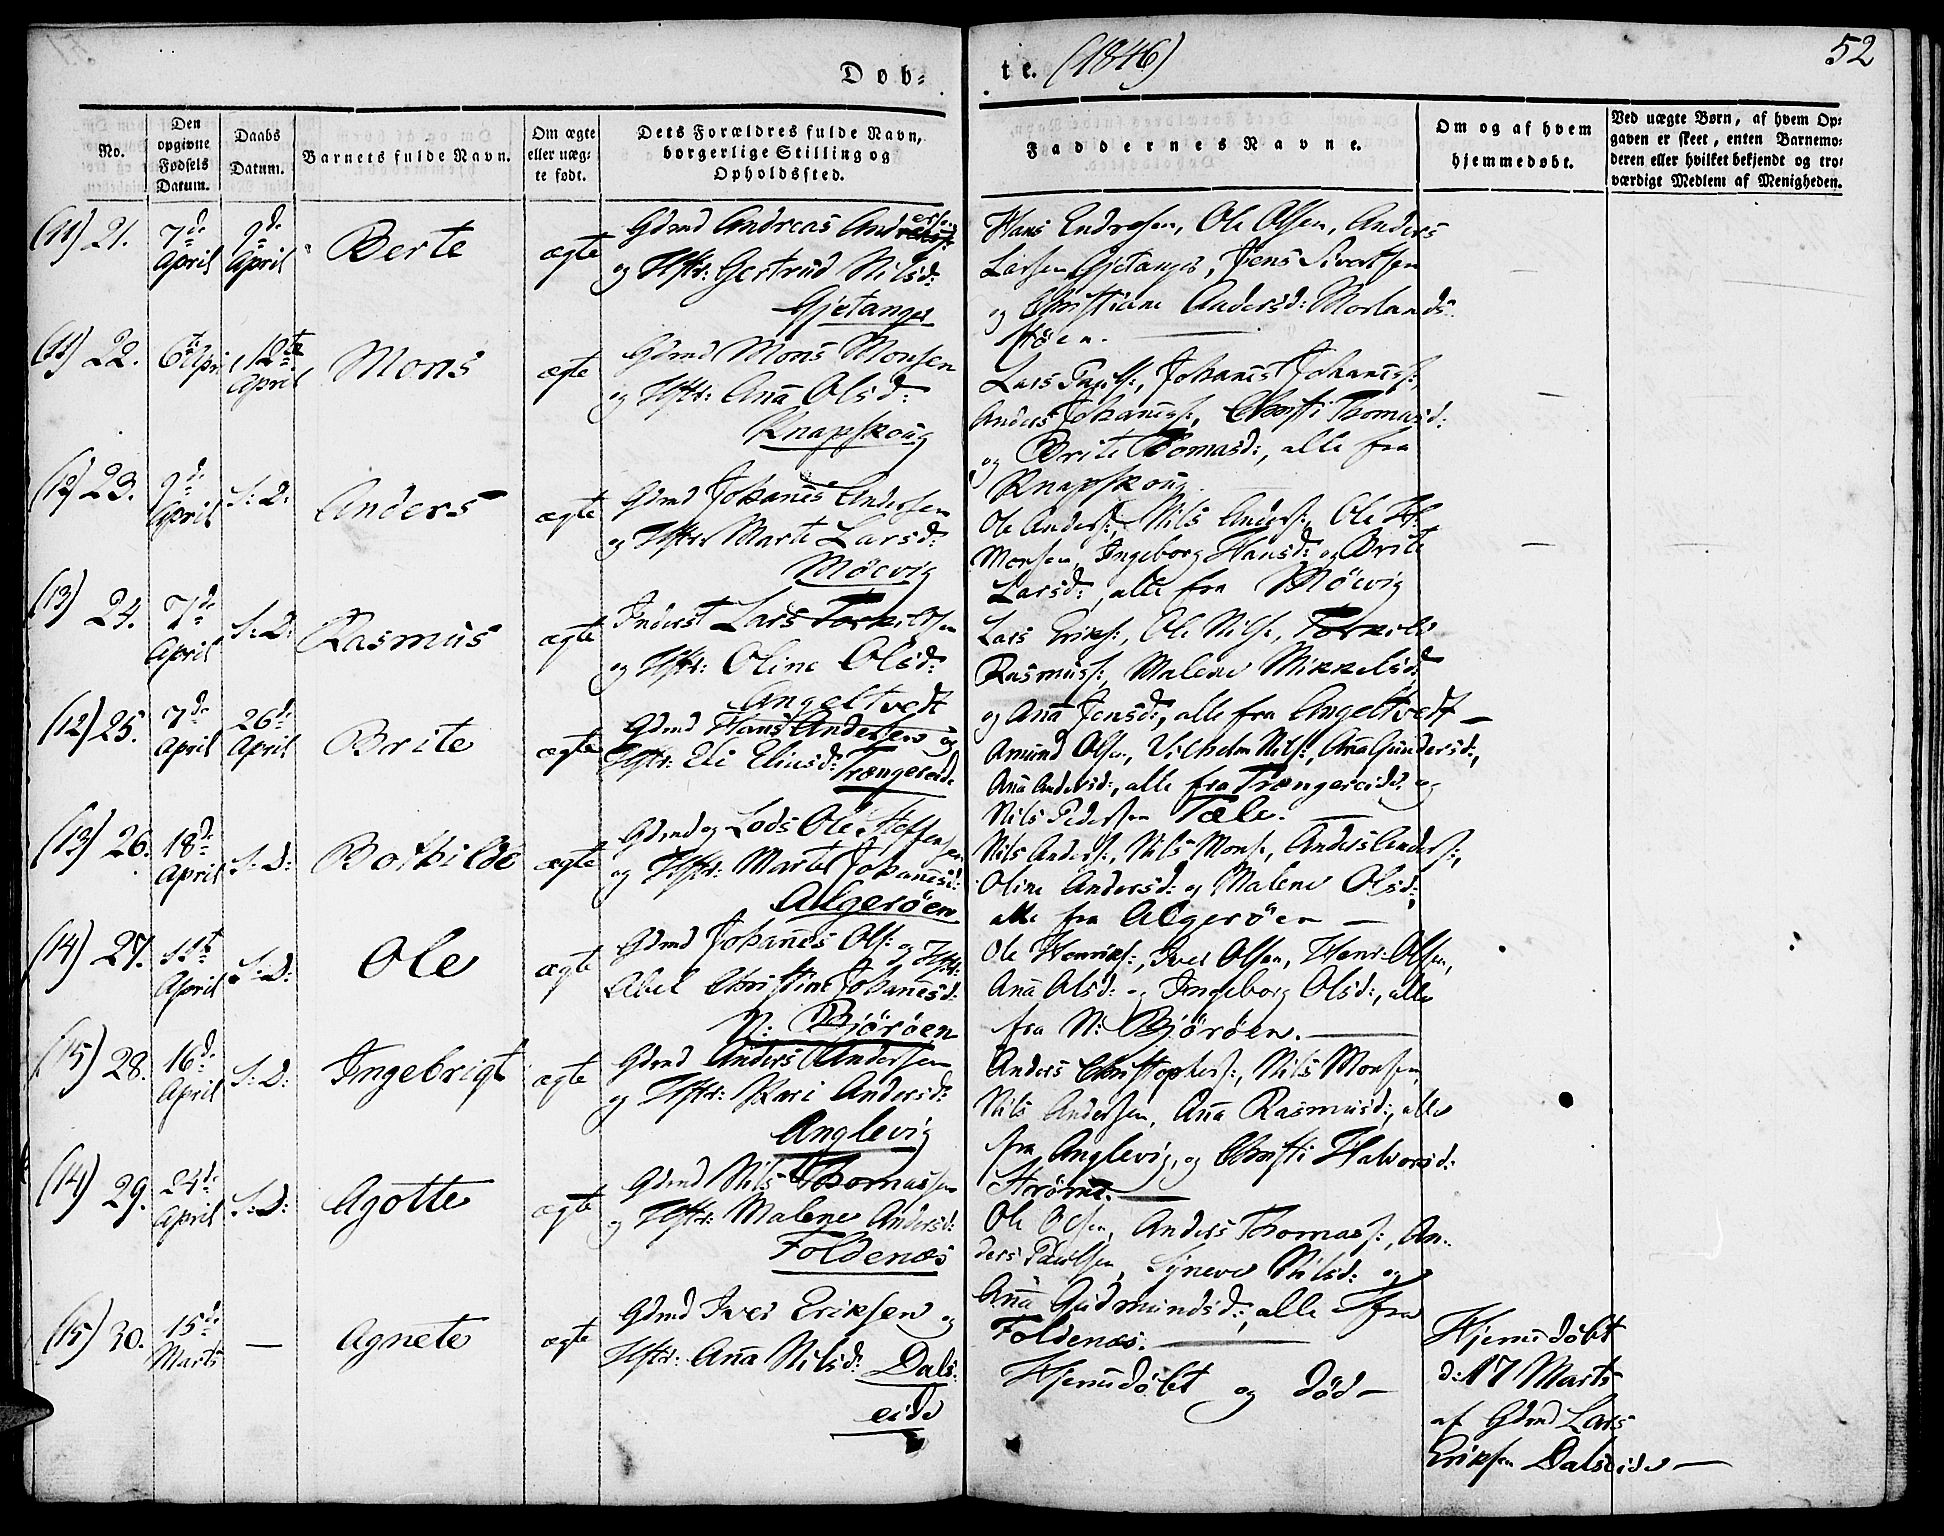 Døb-
te. (1846)
52
No.
Den opgivne Fødsels Datum.
Daabs Datum.
Barnets fulde Navn.
Om ægte eller uæg- te født.
Dets Forældres fulde Navn, borgerlige Stilling og Opholdssted.
Faddernes Navne.
Om og af hvem hjemmedøbt.
Ved uægte Børn, af hvem Op- gaven er skeet, enten Barnemo- deren eller hvilket bekjendt og tro- værdige Medlem af Menigheden.
(11) 21.
7de April
9de April
Berte
ægte
Gdmd Andreas Andersen
og Hstr: Gertrud Nilsd:
Gjetanger
Hans Endresen, Ole Olsen, Anders
Larsen Gjetanger, Jens Sivertsen
og Christiane Andersd: Morlands-
töen.
(11) 22.
6te Apr
12te April
Mons
ægte
Gdmd Mons Monsen
og Hstr: Aña Olsd:
Knapskoug
Lars Pouls:, Johañes Johañess:,
Anders Johañess:, Christi Thomasd:
og Brite Thomasd:, alle fra
Knapskoug.
(12) 23.
9de April
S: D:
Anders
ægte
Gdmd Johañes Andersen
og Hstr: Marte Larsd:
Möcvig
Ole Anders:, Nils Anders:, Ole H:
Monsen, Ingeborg Hansd: og Brite
Larsd:, alle fra Möcvig
(13) 24.
7de April
S: D:
Rasmus
ægte
Inderst Lars Torkildsen
og Hstr: Oline Olsd:
Angeltvedt
Lars Eriks:, Ole Nilss:, Torkild
Rasmuss:, Malene Mikkelsd:
og Aña Jensd:, alle fra Angeltvedt —
(12) 25.
7de April
26de April
Brite
ægte
Gdmd Hans Andersen og
Hstr: Eli Eliasd: Trængereide
Amund Olsen, Vilhelm Nils:, Aña Gundersd:,
Aña Andersd:, alle fra Trængereide og
Nils Pedersen Tæle. —
(13) 26.
18de April
S: D:
Bothilde
ægte
Gdmd og Lods Ole Steffensen
og Hstr: Marte Johañesd:
Algeröen
Nils Anders:, Nils Mons:, Anders Anders:,
Oline Andersd: og Malene Olsd:,
alle fra Algeröen —
(14) 27.
April
S: D:
Ole
ægte
Gdmd Johañes Ols: og Hstr:
Abel Christine Johañesd:
N: Björöen
Ole Henriks:, Iver Olsen, Henr: Olsen,
Aña Olsd: og Ingeborg Olsd:, alle
fra N: Björöen. —
(15) 28.
16de April
S: D:
Ingebrigt
ægte
Gdmd Anders Andersen
og Hstr: Kari Andersd:
Anglevig
Anders Christophers:, Nils Monsen,
Nils Andersen, Aña Rasmusd:, alle
fra Anglevig, og Christi Halvorsd:
Ströme. —
(14) 29.
24de April
S: D:
Agotte
ægte
Gdmd Nils Thomassen
og Hstr: Malene Andersd:
Foldenæs
Ole Olsen, Anders Thomass:, An-
ders Paulsen, Syneve Nilsd: og
Aña Gudmundsd:, alle fra
Foldenæs. —
(15) 30.
15de Marts
—
Agnete
ægte
Gdmd Iver Eriksen og
Hstr: Aña Nilsd: Dals-
eide
Hjem̃döbt og död —
Hjem̃döbt
d: 17 Marts
af Gdmd Lars
Eriksen Dalseide —